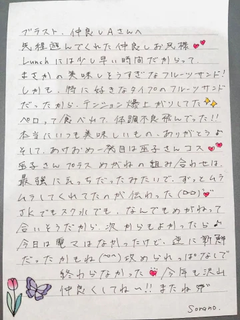 プラスト、仲良しAさんへ
馬種遊んでくれた仲良しお兄様
Lunchには少し早い時間だからって
まさかの美味しそうすぎなフルーツサンド!
しかも、特に好きなタイプのフルーツサンド
だったから、テンション爆上がりしてた
ペロッて食べれて、体調不良飛んだ!!
本当にいつも美味しいもの、ありがとう♪
そして、あけおめ一発目は玉子さんコス
玉子さん プラス めがねの組み合わせは、
最強にえっちだったみたいで、ずっとムラ
ムラしてくれてたのが伝わった
JKでもスク水でも、なんでもめがねって
合いそうだから、次からもよかったら♪
今日は電マはなかったけど、逆に新鮮
だったかもね 攻められっぱなしで
終わらなかった 今年も沢山
仲良くしてね〜!! またね
Sonono.